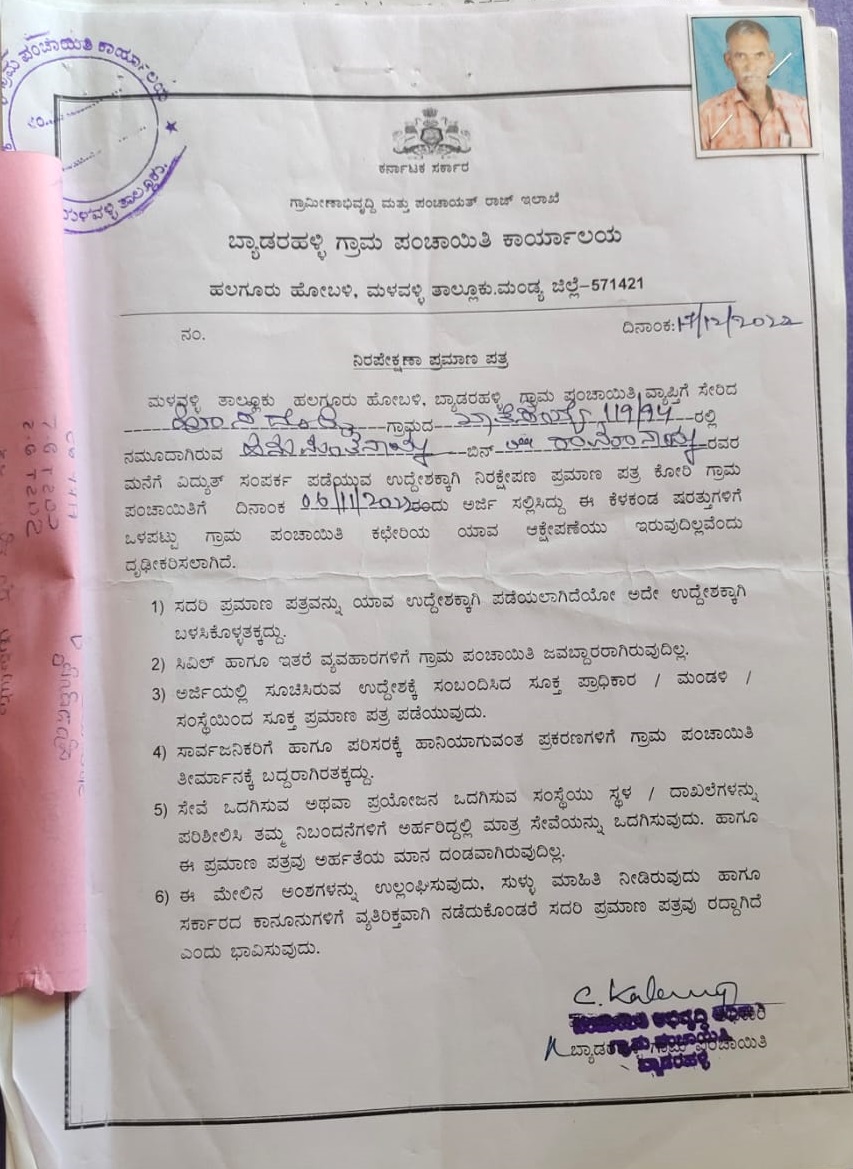 ಗ್ರಾಮ ಪಂಚಾಯಿತಿ ಕಾರ್ಯಾಲಯ
ಮಳವಳ್ಳಿ ತಾಲ್ಲೂಕು.
ಕರ್ನಾಟಕ ಸರ್ಕಾರ
ಗ್ರಾಮೀಣಾಭಿವೃದ್ದಿ ಮತ್ತು ಪಂಚಾಯತ್ ರಾಜ್ ಇಲಾಖೆ
ಬ್ಯಾಡರಹಳ್ಳಿ ಗ್ರಾಮ ಪಂಚಾಯಿತಿ ಕಾರ್ಯಾಲಯ
ಹಲಗೂರು ಹೋಬಳಿ, ಮಳವಳ್ಳಿ ತಾಲ್ಲೂಕು.ಮಂಡ್ಯ ಜಿಲ್ಲೆ-571421
ನಂ. ದಿನಾಂಕ:17/12/2022
ನಿರಪೇಕ್ಷಣಾ ಪ್ರಮಾಣ ಪತ್ರ
ಮಳವಳ್ಳಿ ತಾಲ್ಲೂಕು ಹಲಗೂರು ಹೋಬಳಿ, ಬ್ಯಾಡರಹಳ್ಳಿ ಗ್ರಾಮ ಪಂಚಾಯಿತಿ ವ್ಯಾಪ್ತಿಗೆ ಸೇರಿದ
ಗ್ರಾಮದ 119/94 ರಲ್ಲಿ
ನಮೂದಾಗಿರುವ ಬಿನ್ ರವರ
ಮನೆಗೆ ವಿದ್ಯುತ್ ಸಂಪರ್ಕ ಪಡೆಯುವ ಉದ್ದೇಶಕ್ಕಾಗಿ ನಿರಕ್ಷೇಪಣ ಪ್ರಮಾಣ ಪತ್ರ ಕೋರಿ ಗ್ರಾಮ
ಪಂಚಾಯಿತಿಗೆ ದಿನಾಂಕ 06/11/2022ರಂದು ಅರ್ಜಿ ಸಲ್ಲಿಸಿದ್ದು ಈ ಕೆಳಕಂಡ ಷರತ್ತುಗಳಿಗೆ
ಒಳಪಟ್ಟು ಗ್ರಾಮ ಪಂಚಾಯಿತಿ ಕಛೇರಿಯ ಯಾವ ಆಕ್ಷೇಪಣೆಯು ಇರುವುದಿಲ್ಲವೆಂದು
ದೃಢೀಕರಿಸಲಾಗಿದೆ.
1) ಸದರಿ ಪ್ರಮಾಣ ಪತ್ರವನ್ನು ಯಾವ ಉದ್ದೇಶಕ್ಕಾಗಿ ಪಡೆಯಲಾಗಿದೆಯೋ ಅದೇ ಉದ್ದೇಶಕ್ಕಾಗಿ
ಬಳಸಿಕೊಳ್ಳತಕ್ಕದ್ದು.
2) ಸಿವಿಲ್ ಹಾಗೂ ಇತರೆ ವ್ಯವಹಾರಗಳಿಗೆ ಗ್ರಾಮ ಪಂಚಾಯಿತಿ ಜವಬ್ದಾರರಾಗಿರುವುದಿಲ್ಲ.
3) ಅರ್ಜಿಯಲ್ಲಿ ಸೂಚಿಸಿರುವ ಉದ್ದೇಶಕ್ಕೆ ಸಂಬಂದಿಸಿದ ಸೂಕ್ತ ಪ್ರಾಧಿಕಾರ / ಮಂಡಳಿ /
ಸಂಸ್ಥೆಯಿಂದ ಸೂಕ್ತ ಪ್ರಮಾಣ ಪತ್ರ ಪಡೆಯುವುದು.
4) ಸಾರ್ವಜನಿಕರಿಗೆ ಹಾಗೂ ಪರಿಸರಕ್ಕೆ ಹಾನಿಯಾಗುವಂತ ಪ್ರಕರಣಗಳಿಗೆ ಗ್ರಾಮ ಪಂಚಾಯಿತಿ
ತೀರ್ಮಾನಕ್ಕೆ ಬದ್ದರಾಗಿರತಕ್ಕದ್ದು.
5) ಸೇವೆ ಒದಗಿಸುವ ಅಥವಾ ಪ್ರಯೋಜನ ಒದಗಿಸುವ ಸಂಸ್ಥೆಯು ಸ್ಥಳ / ದಾಖಲೆಗಳನ್ನು
ಪರಿಶೀಲಿಸಿ ತಮ್ಮ ನಿಬಂದನೆಗಳಿಗೆ ಅರ್ಹರಿದ್ದಲ್ಲಿ ಮಾತ್ರ ಸೇವೆಯನ್ನು ಒದಗಿಸುವುದು. ಹಾಗೂ
ಈ ಪ್ರಮಾಣ ಪತ್ರವು ಅರ್ಹತೆಯ ಮಾನ ದಂಡವಾಗಿರುವುದಿಲ್ಲ.
6) ಈ ಮೇಲಿನ ಅಂಶಗಳನ್ನು ಉಲ್ಲಂಘಿಸುವುದು, ಸುಳ್ಳು ಮಾಹಿತಿ ನೀಡಿರುವುದು ಹಾಗೂ
ಸರ್ಕಾರದ ಕಾನೂನುಗಳಿಗೆ ವ್ಯತಿರಿಕ್ತವಾಗಿ ನಡೆದುಕೊಂಡರೆ ಸದರಿ ಪ್ರಮಾಣ ಪತ್ರವು ರದ್ದಾಗಿದೆ
ಎಂದು ಭಾವಿಸುವುದು.
ಪಂಚಾಯಿತಿ ಅಭಿವೃದ್ಧಿ ಅಧಿಕಾರಿ
ಗ್ರಾಮ ಪಂಚಾಯಿತಿ
ಬ್ಯಾಡರಹಳ್ಳಿ